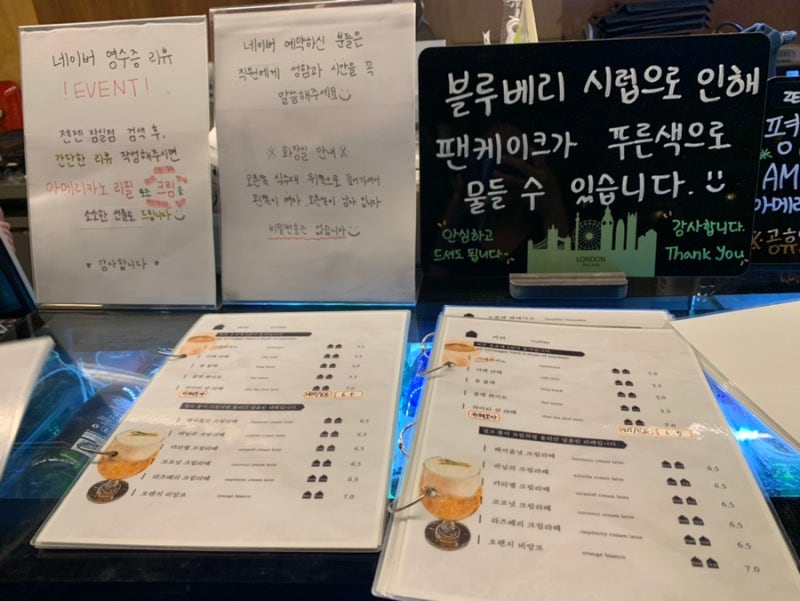 네이버 영수증 리뷰
! EVENT !
젠젠 잠실점 검색 후,
간단한 리뷰 작성해주시면
아메리카노 리필 또는 크림을
소소한 선물로 드립니다
감사합니다
네이버 예약하신 분들은
직원에게 성함과 시간을 꼭
말씀해주세요
※ 화장실 안내 ※
왼쪽이 여자, 오른쪽이 남자 입니다
비밀번호는 없습니다
블루베리 시럽으로 인해
팬케이크가 푸른색으로
물들 수 있습니다.
안심하고
드셔도 됩니다
LONDON
감사합니다.
Thank You
AM
아메리
커피 Coffee
아메리카노 5.0
카페 라떼 cafe latte 5.5
롱 블랙 long black 5.0
플랫 화이트 flat white 5.5
화이티 샷 라떼 7.0
HOT/ICE 6.5
밀크 폼이 크림처럼 올라간 달콤한 라떼입니다.
헤이즐넛 크림라떼 hazelnut cream latte 6.5
바닐라 크림라떼 vanilla cream latte 6.5
카라멜 크림라떼 caramel cream latte 6.5
코코넛 크림라떼 coconut cream latte 6.5
라즈베리 크림라떼 raspberry cream latte 6.5
오렌지 비앙코 orange bianco 7.0
커피 Coffee
아메리카노 5.0
카페 라떼 cafe latte 5.5
롱 블랙 long black 5.0
플랫 화이트 flat white 5.5
화이티 샷 라떼 7.0
HOT/ICE 6.5
밀크 폼이 크림처럼 올라간 달콤한 라떼입니다.
헤이즐넛 크림라떼 hazelnut cream latte 6.5
바닐라 크림라떼 vanilla cream latte 6.5
카라멜 크림라떼 caramel cream latte 6.5
코코넛 크림라떼 coconut cream latte 6.5
라즈베리 크림라떼 raspberry cream latte 6.5
오렌지 비앙코 orange bianco 7.0